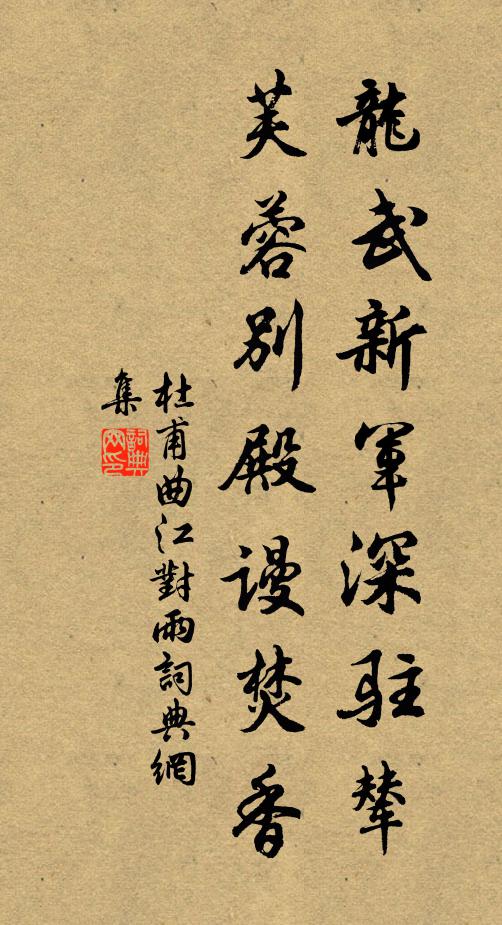 龍武新軍深駐輦
芙蓉別殿謾焚香
杜甫曲江對雨詞典網
集
詞典
网印